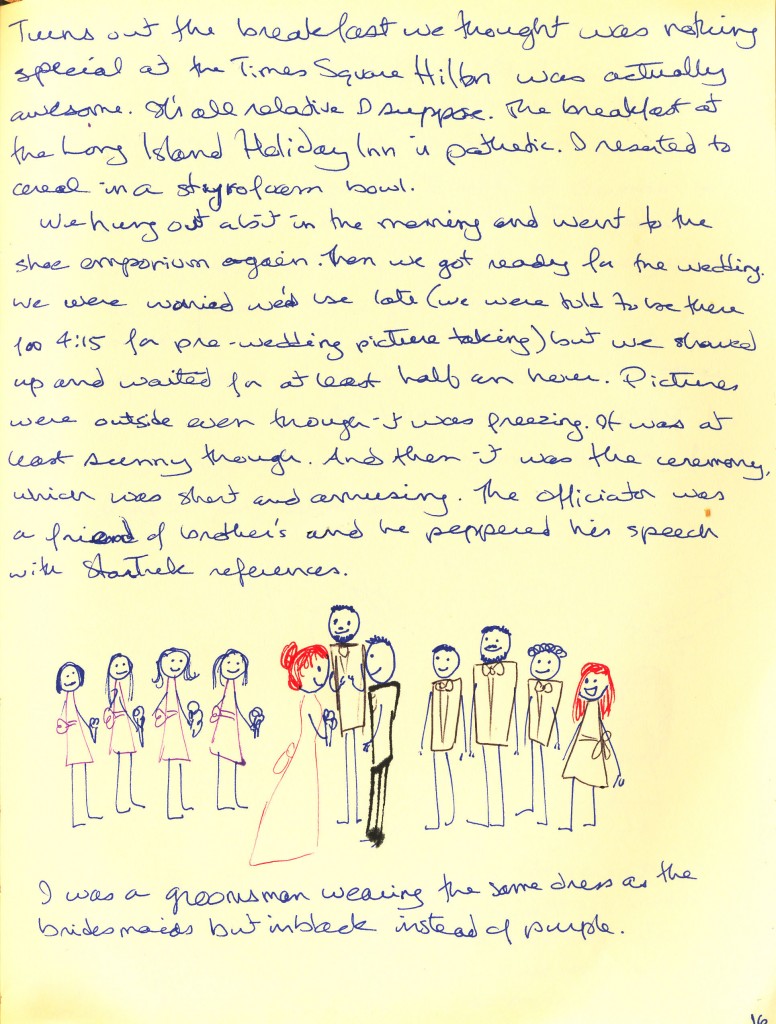 Turns out the breakfast we thought was nothing
special at the Times Square Hilton was actually
awesome. It's all relative I suppose. The breakfast at
the Long Island Holiday Inn is pathetic. I resorted to
cereal in a styrofoam bowl.
We hung out a bit in the morning and went to the
shoe emporium again. Then we got ready for the wedding.
We were worried we'd be late (we were told to be there
for 4:15 for pre-wedding picture taking) but we showed
up and waited for at least half an hour. Pictures
were outside even though it was freezing. It was at
least sunny though. And then it was the ceremony,
which was short and amusing. The officiator was
a friend of brother's and he peppered his speech
with StarTrek references.
I was a groomsman wearing the same dress as the
bridesmaids but in black instead of purple.
16